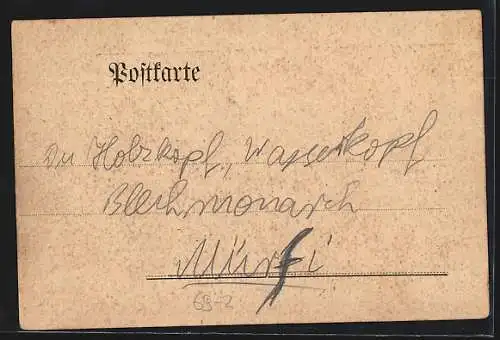 Postkarte
Du Holzkopf, Wasserkopf
Blechmonarch
Mürfi
69-2